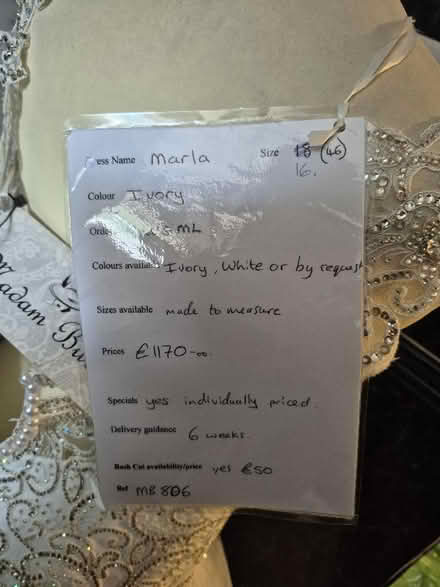 ess Name Marla Size 18 (46)
16.
Colour Ivory
ML
Colours availa Ivory, White or by request
Sizes available made to measure
Prices £1170-00.
Specials yes individually priced.
Delivery guidance 6 weeks.
Rush Cut availability/price yes £50
Ref MB 806
adam Bu